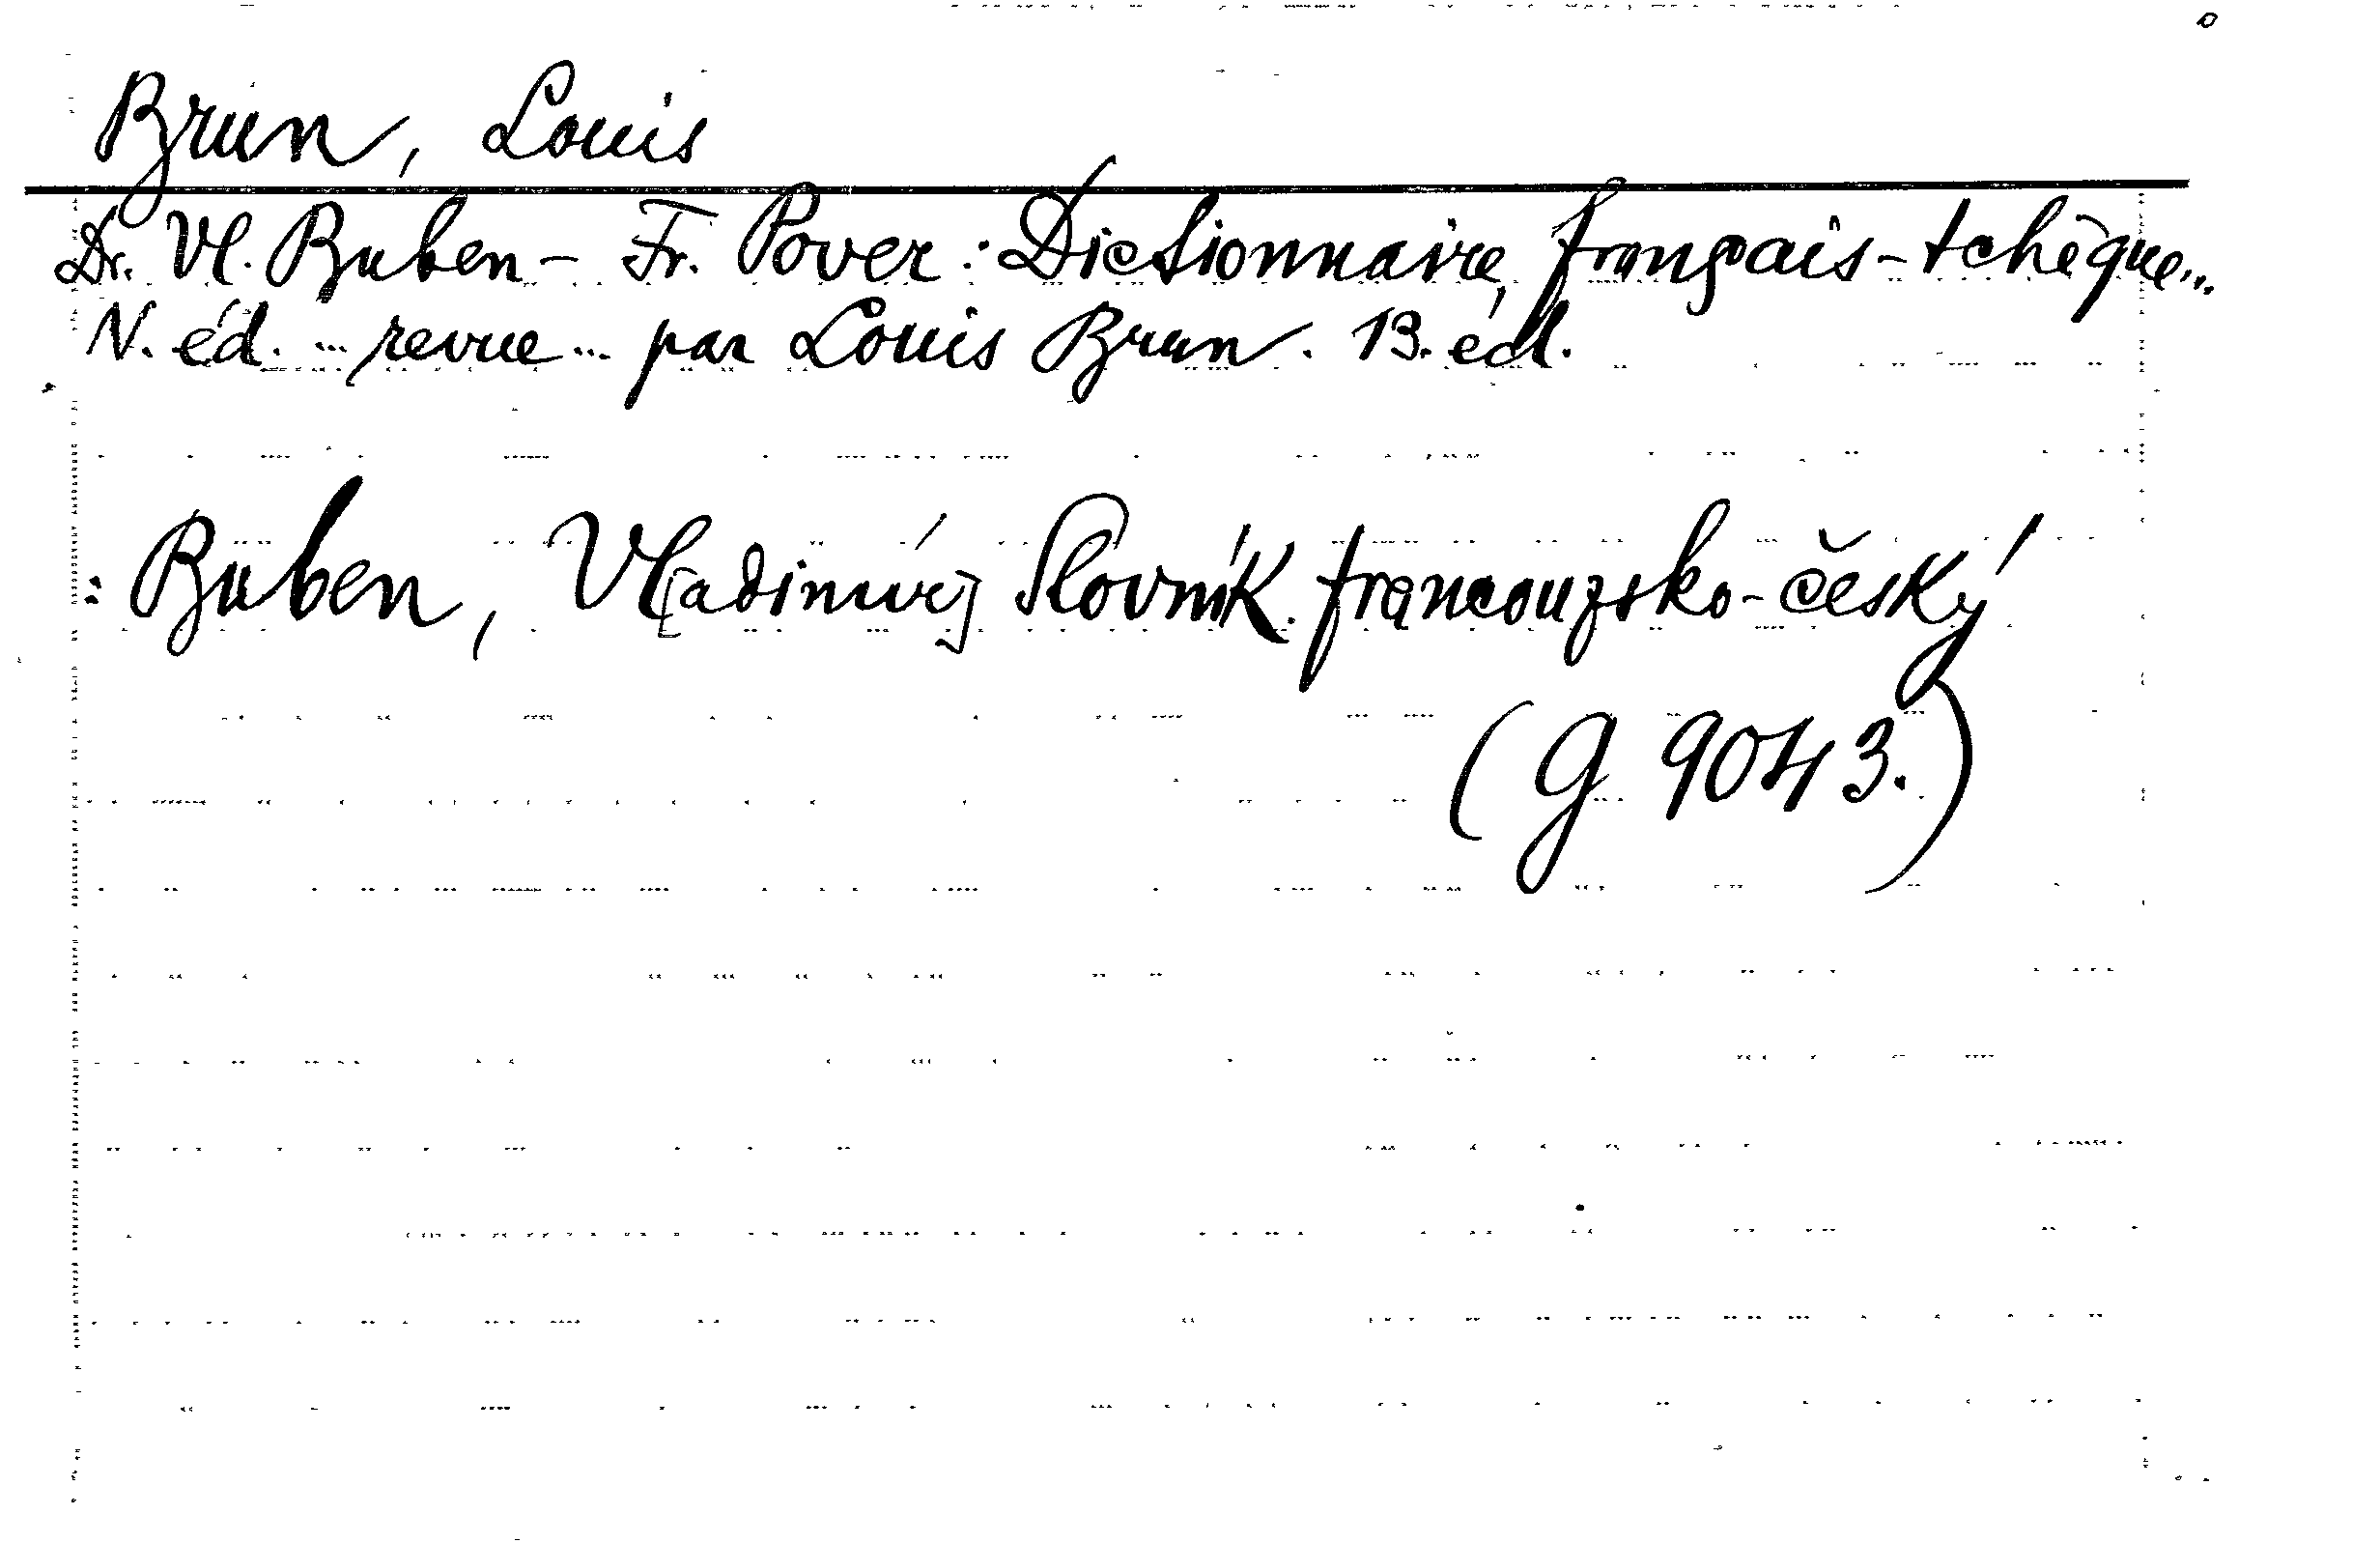 Brun, Louis
Dr. Vl. Buben - Fr. Pover: Dictionnaire français-tchèque...
N. éd. ... revue ... par Louis Brun. 13. éd.
: Buben, Vl[adimír] Slovník francouzsko-český
(G 9043.)